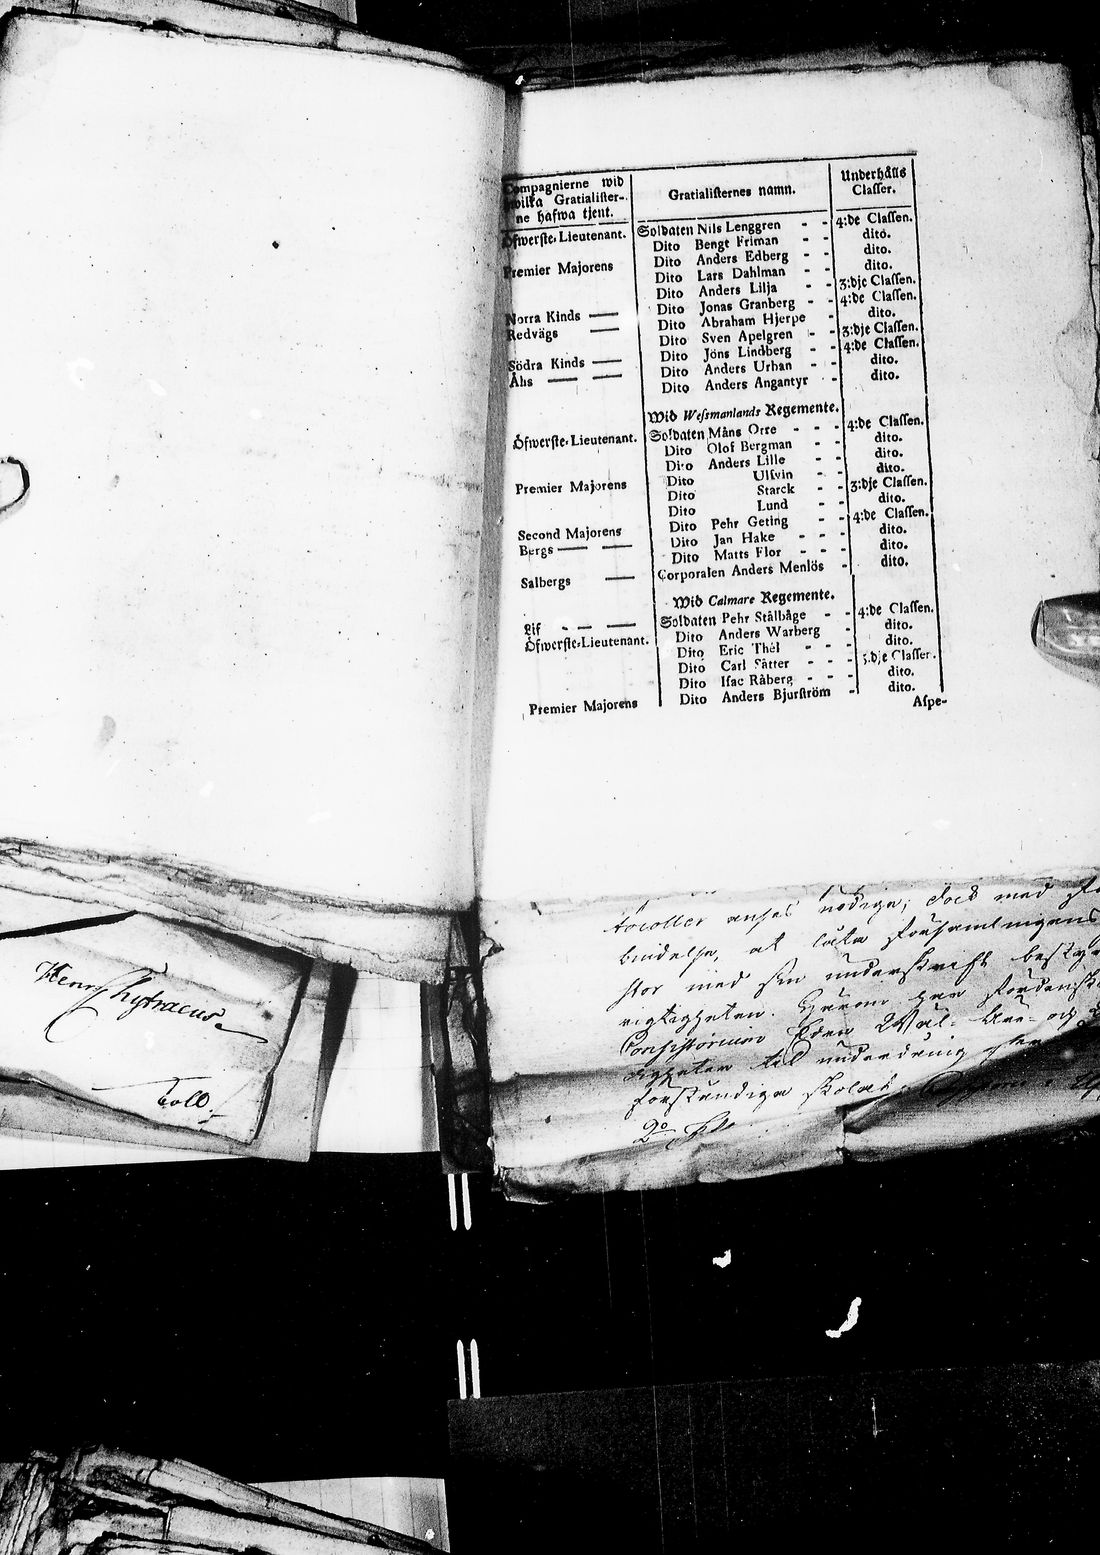 Compagnierne wid
hwilka Gratialister-
ne hafwa tjent.
Gratialisternes namn.
Underhålls
Classer.
Öfwerste-Lieutenant. Soldaten Nils Lenggren - - 4:de Classen.
Dito Bengt Friman - - dito.
Premier Majorens Dito Anders Edberg - - dito.
Dito Lars Dahlman - - dito.
Dito Anders Lilja - - 3:dje Classen.
Norra Kinds Dito Jonas Granberg - - 4:de Classen.
Redvägs Dito Abraham Hjerpe - dito.
Dito Sven Apelgren - - 3:dje Classen.
Södra Kinds Dito Jöns Lindberg - - 4:de Classen.
Åhs Dito Anders Urhan - - dito.
Dito Anders Angantyr - dito.
Wid Westmanlands Regemente.
Öfwerste-Lieutenant. Soldaten Måns Orre - - - 4:de Classen.
Dito Olof Bergman - - dito.
Dito Anders Lille - - dito.
Premier Majorens Dito Ulfvin - - dito.
Dito Starck - - 3:dje Classen.
Dito Lund - - dito.
Second Majorens Dito Pehr Geting - - 4:de Classen.
Bergs Dito Jan Hake - - - dito.
Dito Matts Flor - - - dito.
Salbergs Corporalen Anders Menlös - dito.
Wid Calmare Regemente.
Lif Soldaten Pehr Stålbåge - - 4:de Classen.
Öfwerste-Lieutenant. Dito Anders Warberg - dito.
Dito Eric Thél - - - dito.
Dito Carl Sätter - - - 3:dje Classen.
Dito Isac Råberg - - - dito.
Premier Majorens Dito Anders Bjurström - dito.
Aspe-
anses nödiga; dock med
at låta församlingens
med sin underskrift
Consistorium
til
2o
Henr
Tolv